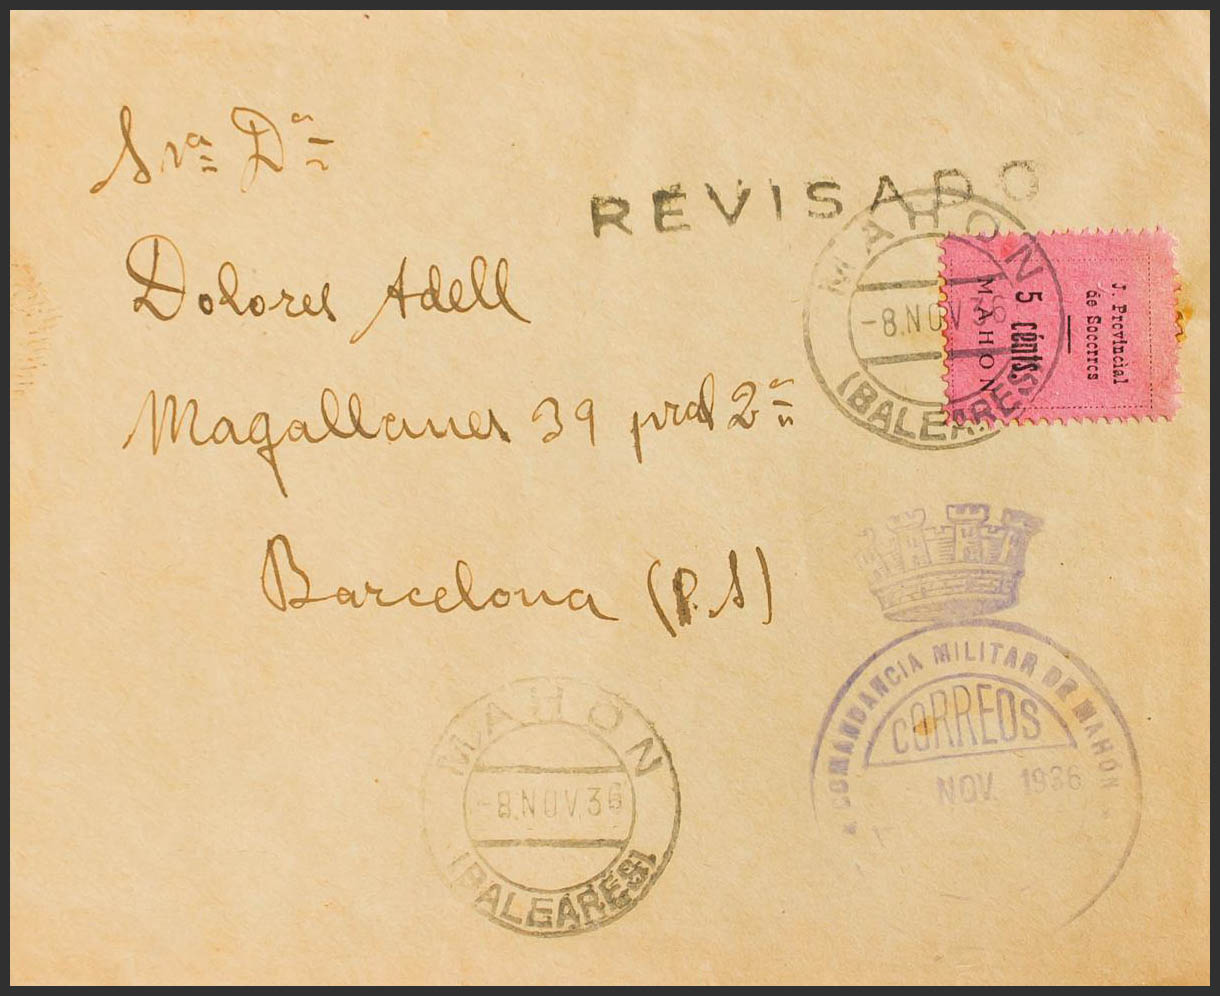 Srª Dª
REVISADO
Dolores Adell
Magallanes 39 pral 2ª
Barcelona (P.S)
MAHON
-8.NOV.36
(BALEARES)
J. Provincial
de Socorros
5 cénts.
MAHON
COMANDANCIA MILITAR DE MAHÓN
CORREOS
NOV. 1936
MAHON
-8.NOV.36
(BALEARES)